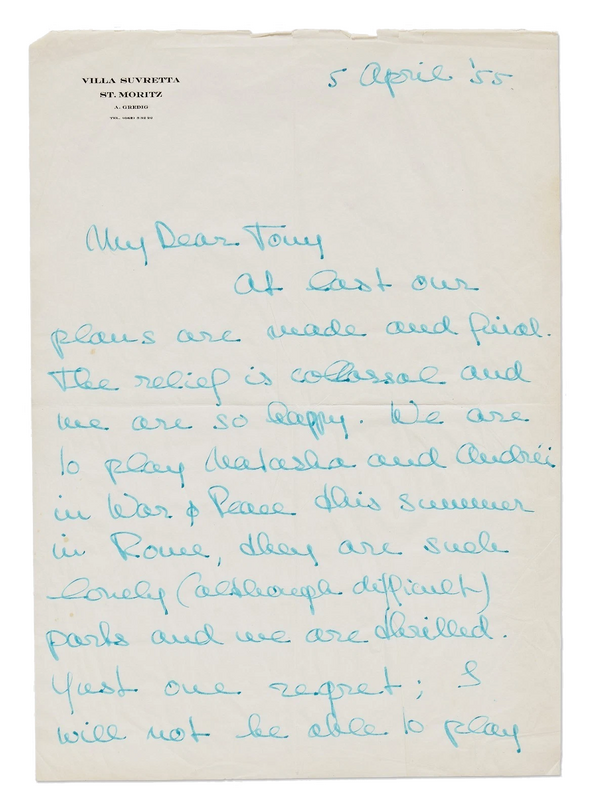 VILLA SUVRETTA
ST. MORITZ
A. GREDIG
5 April '55.
My Dear Tony
At last our
plans are made and final.
The relief is colossal and
we are so happy. We are
to play Natasha and Andréi
in War & Peace this summer
in Rome, they are such
lovely (although difficult)
parts and we are thrilled.
Just one regret; I
will not be able to play